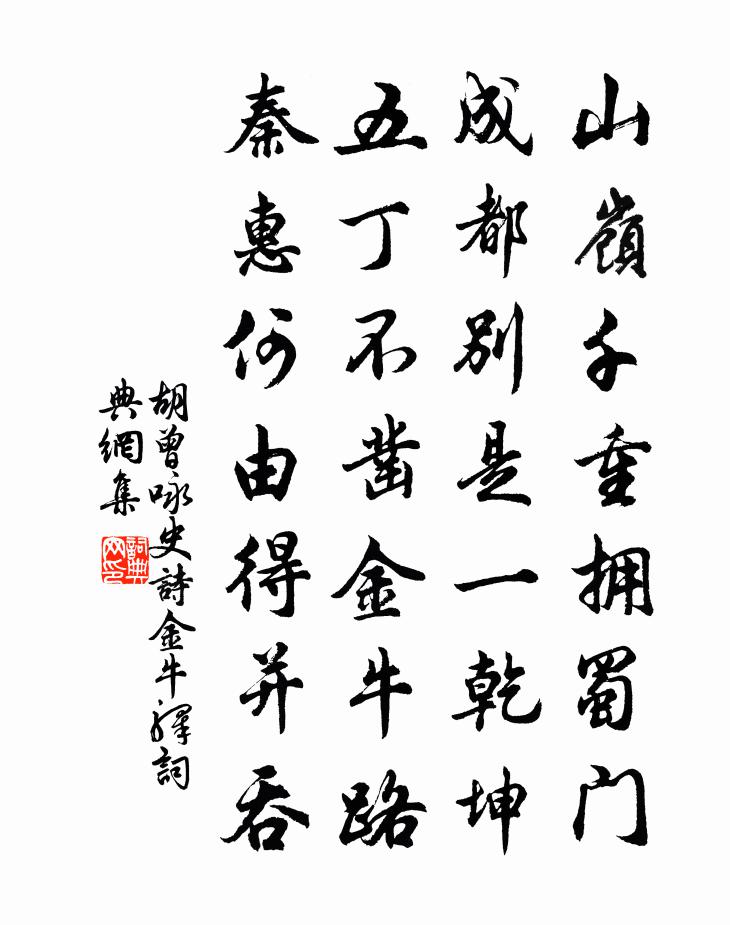 山嶺千重拥蜀门
成都别是一乾坤
五丁不凿金牛路
秦惠何由得并吞
胡曾咏史詩金牛驛詞
典網集
詞典
网印